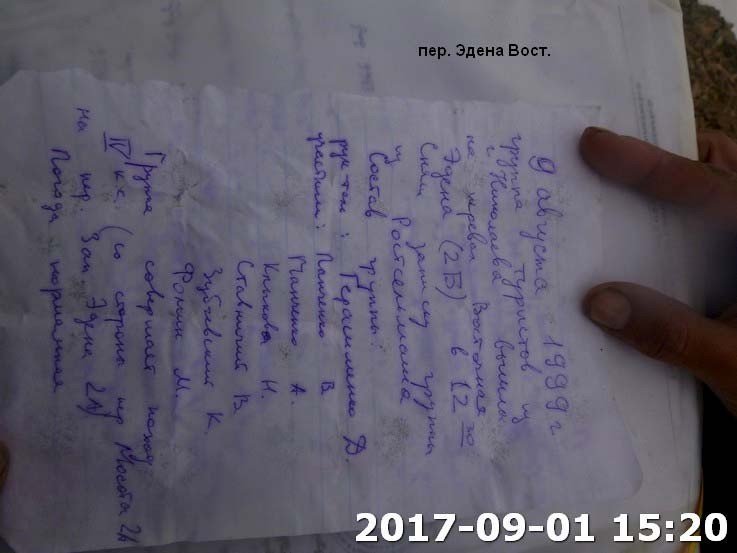 пер. Эдена Вост.
9 августа 1999 г
группа туристов из
г. Николаева вышла
на перевал Восточная
Эдена (2Б) в 12 30
Сняли записку группы
из Ростсельмаша
Состав группы:
рук-тель: Герасименко Д.
участники: Панченко В
Панченко А.
Климова Н.
Ставничий В
Зубовский К.
Фомин М.
Группа совершает поход
IV к.с. (со стороны пер Мосота 2А
на пер. Зап Эдена 2А)
Погода нормальная
2017-09-01 15:20